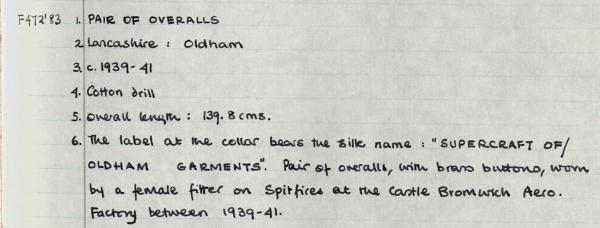 F472'83 1. PAIR OF OVERALLS
2. Lancashire : Oldham
3. c. 1939-41
4. Cotton drill
5. Overall length : 139.8 cms.
6. The label at the collar bears the silk name : "SUPERCRAFT OF/
OLDHAM GARMENTS". Pair of overalls, with brass buttons, worn
by a female fitter on Spitfires at the Castle Bromwich Aero.
Factory between 1939-41.